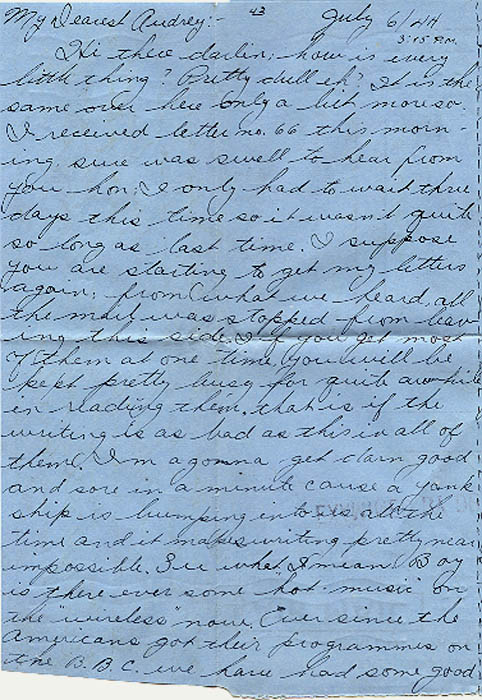 My Dearest Audrey:- 43 July 6/44
3:15 P.M.
Hi there darlin; how is every
little thing? Pretty dull eh? It is the
same over here only a bit more so.
I received letter no. 66 this morn-
ing, sure was swell to hear from
you hon; I only had to wait three
days this time so it wasn't quite
so long as last time. I suppose
you are starting to get my letters
again; from what we heard, all
the mail was stopped from leav-
ing this side. If you get most
of them at one time, you will be
kept pretty busy for quite awhile
in reading them, that is if the
writing is as bad as this in all of
them. I'm agonna get darn good
and sore in a minute cause a yank
ship is bumping into us all the
time and it makes writing pretty near
impossible. See what I mean. Boy
is there ever some "hot music" on
the "wireless" now. Ever since the
Americans got their programmes on
the B.B.C. we have had some good